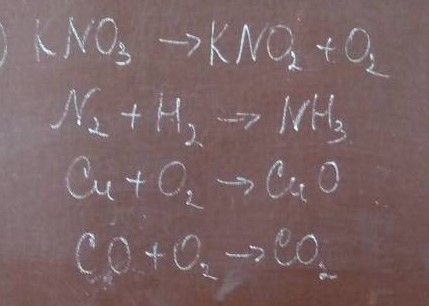 ) KNO₃ → KNO₂ + O₂
N₂ + H₂ → NH₃
Cu + O₂ → CuO
CO + O₂ → CO₂